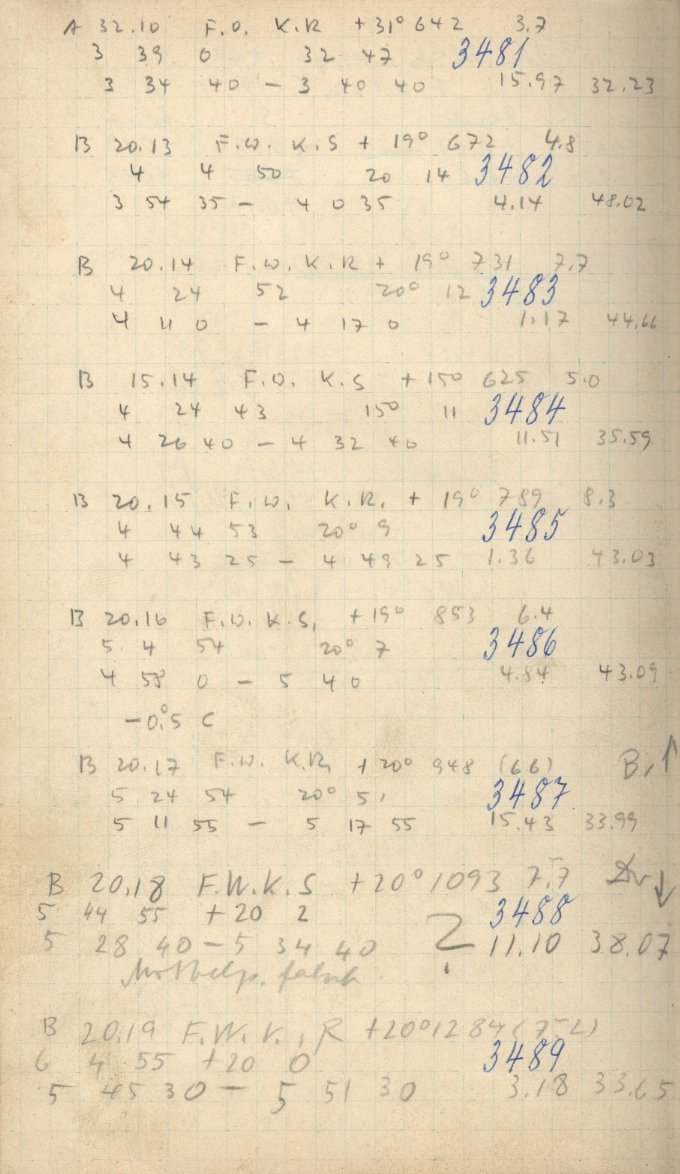 A 32.10 F.W. K.R +31° 642 3.7
3 39 0 32 47 3481
3 34 40 – 3 40 40 15.97 32.23
B 20.13 F.W. K.S + 19° 672 4.8
4 4 50 20 14 3482
3 54 35 – 4 0 35 4.14 48.02
B 20.14 F.W. K.R + 19° 731 7.7
4 24 52 20° 12 3483
4 11 0 – 4 17 0 1.17 44.66
B 15.14 F.W. K.S +15° 625 5.0
4 24 43 15° 11 3484
4 26 40 – 4 32 40 11.51 35.59
B 20.15 F.W. K.R. + 19° 789 8.3
4 44 53 20° 9 3485
4 43 25 – 4 49 25 1.36 43.03
B 20.16 F.W. K.S. +19° 853 6.4
5 4 54 20° 7 3486
4 58 0 – 5 4 0 4.84 43.09
–0.°5 C
B 20.17 F.W. K.R. +20° 948 (6.6) Br ↑
5 24 54 20° 5 3487
5 11 55 – 5 17 55 15.43 33.99
B 20.18 F.W.K.S +20° 1093 7.7 ↓
5 44 55 +20 2 3488
5 28 40 – 5 34 40 ? 11.10 38.07
falsch
B 20.19 F.W.K.R +20° 1284 (7.2)
6 4 55 +20 0 3489
5 45 30 – 5 51 30 3.18 33.65